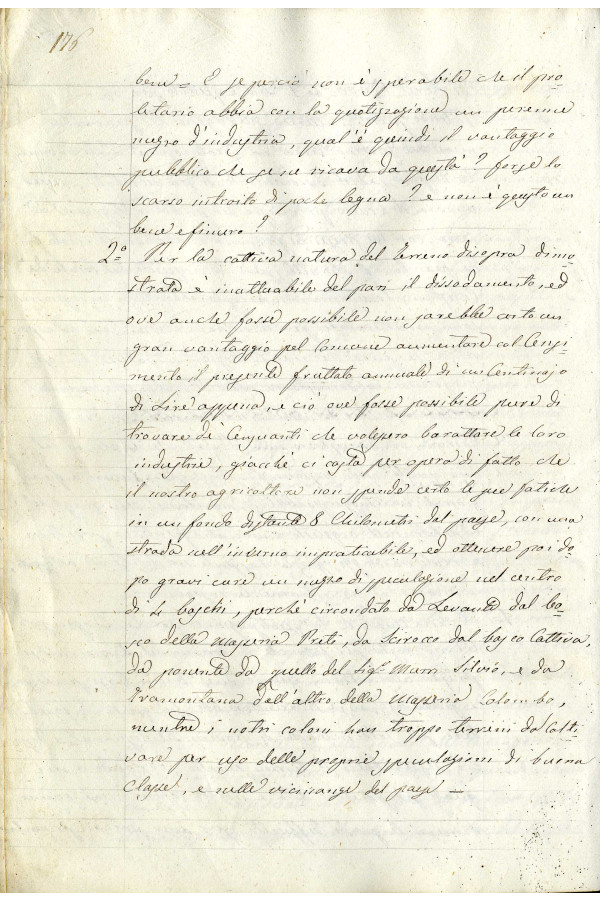 176
bene = E se perciò non è sperabile che il pro-
letario abbia con la quotizzazione un perenne
mezzo d'industria, qual'è quindi il vantaggio
pubblico che se ne ricava da questa? forse lo
scarso introito di poche legna? e non è questo un
bene efimero?
2º Per la cattiva natura del terreno disopra dimo-
strata è inattuabile del pari il dissodamento, ed
ove anche fosse possibile non sarebbe certo un
gran vantaggio pel Comune aumentare col Censi-
mento il presente fruttato annuale di un Centinajo
di Lire appena, e ciò ove fosse possibile pure di
trovare de' Censuanti che volessero barattare le loro
industrie, giacchè ci costa per opera di fatto che
il nostro agricoltore non spende certo le sue fatiche
in un fondo distante 8 Chilometri dal paese, con una
strada nell'inverno impraticabile, ed ottenere poi do-
po gravi cure un mezzo di speculazione nel centro
di 4 boschi, perchè circondato da Levante dal bo-
sco della Masseria Preti, da Scirocco dal bosco Cattiva,
da ponente da quello del Sigr Murri Silvio, e da
Tramontana dall'altro della Masseria Colombo,
mentre i notri coloni han troppo terreni da Colti-
vare per uso delle proprie speculazioni di buona
Classe, e nelle vicinanze del paese —